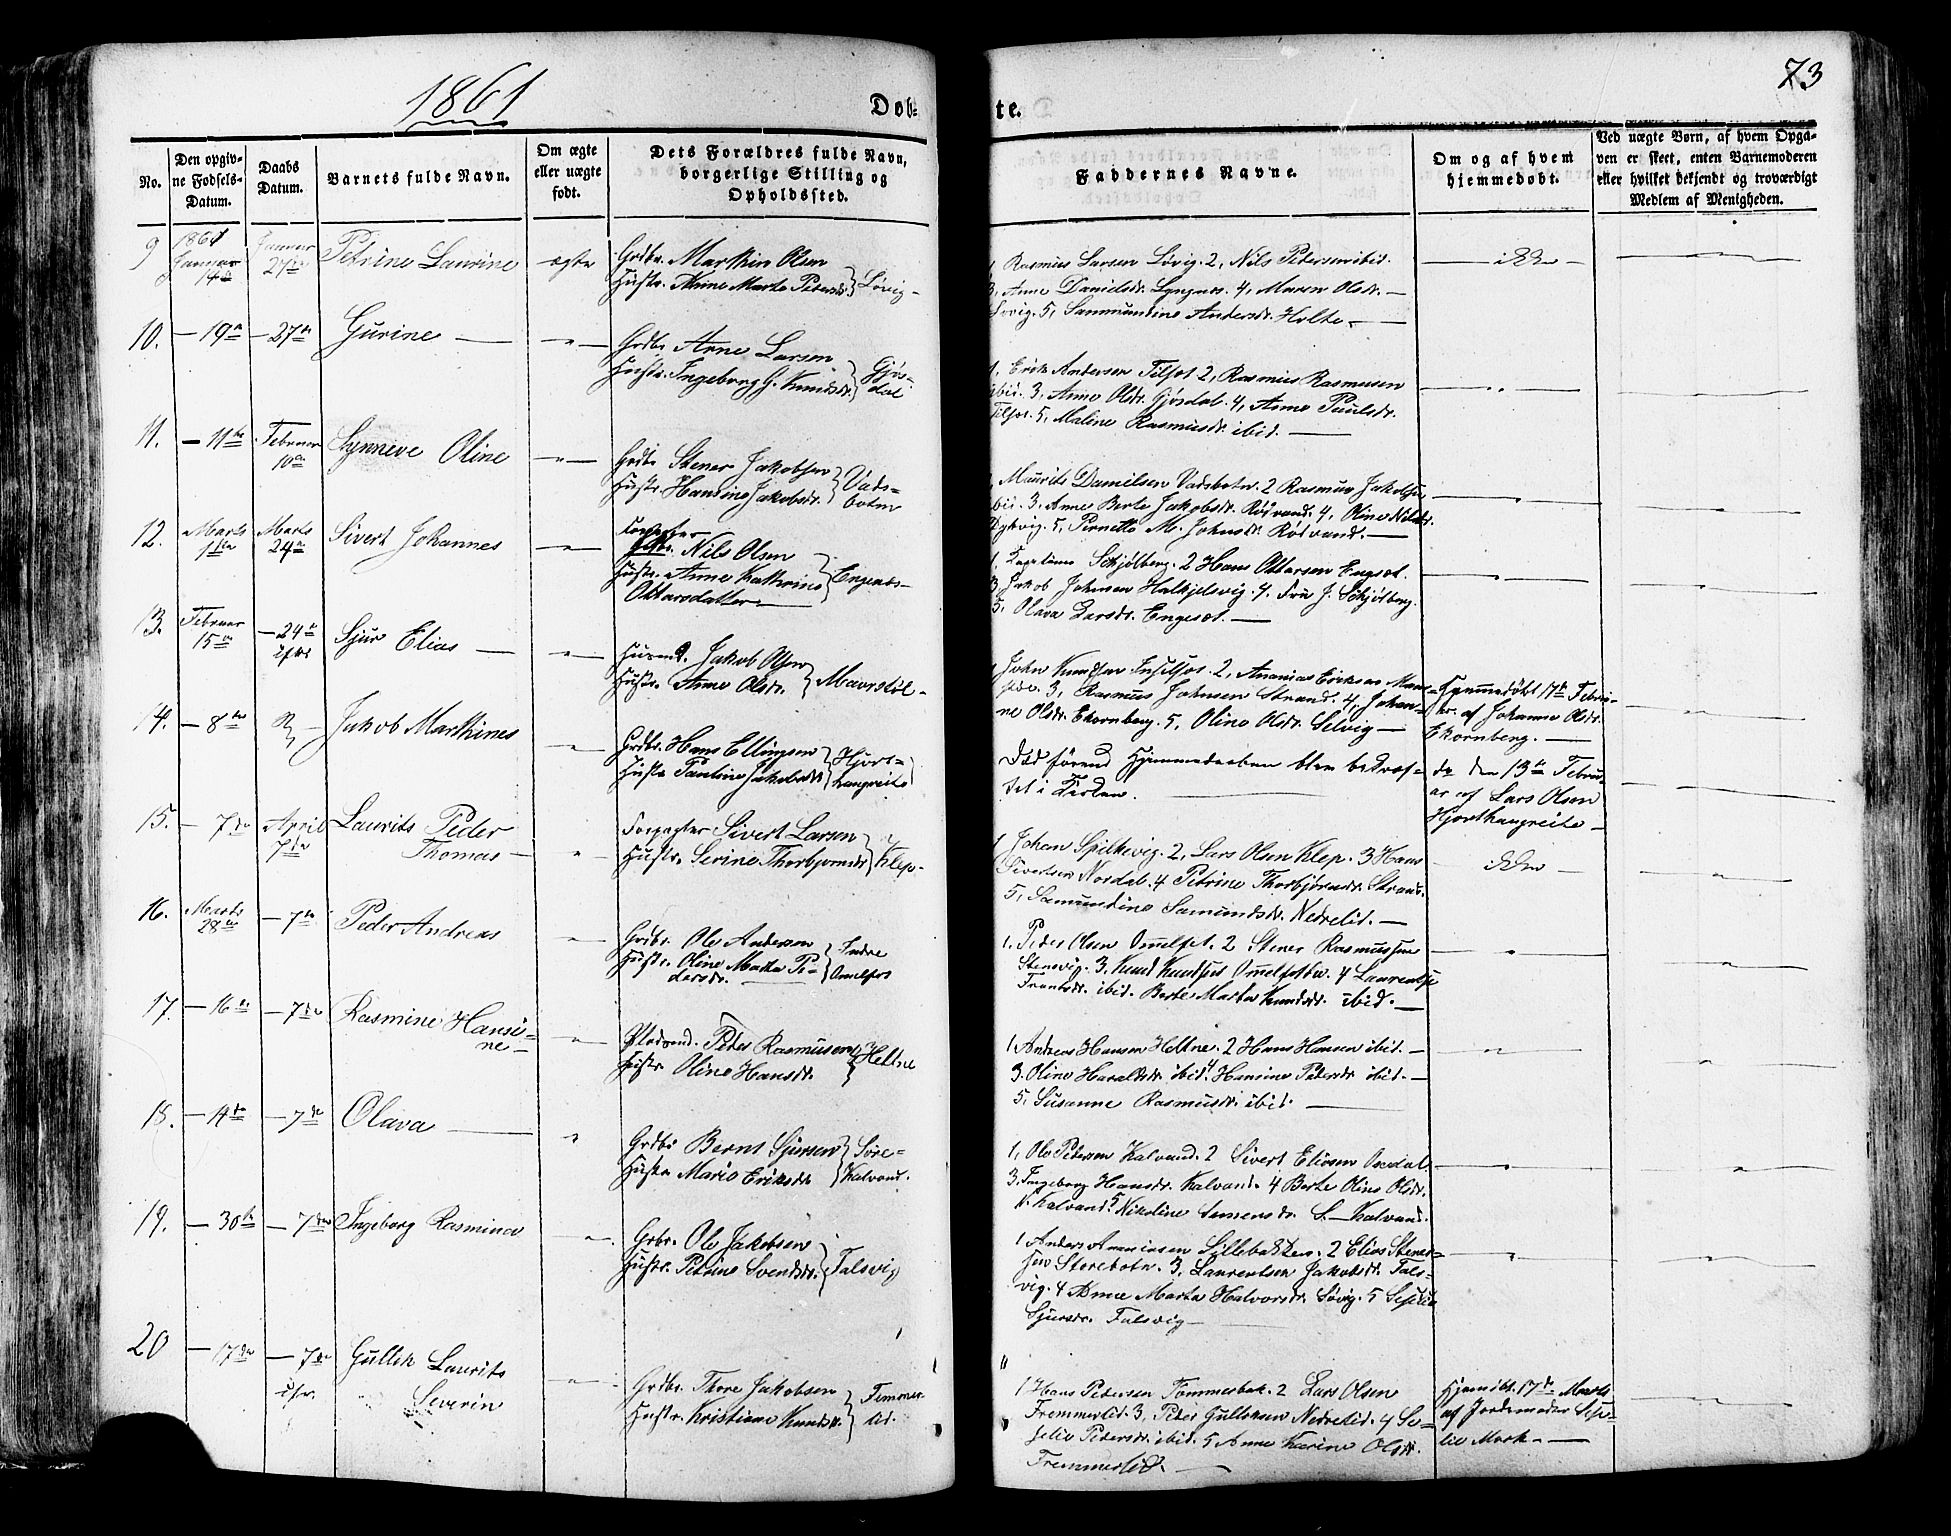 1861
Døb-
te.
73
No.
Den opgiv-
ne Fødsels-
Datum.
Daabs
Datum.
Barnets fulde Navn.
Om ægte
eller uægte
født.
Dets Forældres fulde Navn,
borgerlige Stilling og
Opholdssted.
Faddernes Navne.
Om og af hvem
hjemmedøbt.
Ved uægte Børn, af hvem Opga-
ven er skeet, enten Barnemoderen
eller hvilket bekjendt og troværdigt
Medlem af Menigheden.
9
1861
Januar
14de
Januar
27de
Petrine Laurine
ægte
Grdbr. Marthin Olsen
Hustr. Anne Marte Petersdr. } Løvig
1, Rasmus Larsen Løvig. 2, Nils Pedersen ibid.
3, Anne Danielsdr. Lyngnes. 4, Maren Olsdr.
Løvig. 5, Sammundine Andersdr. Holte.
ikke
10.
- 19de
- 27de
Gurine
Grdbr. Arne Larsen
Hustr. Ingeborg G. Knudsdr. } Gjøs-
dal
1, Erik Andersen Tilset 2, Rasmus Rasmusen
ibid. 3, Anne Olsdr. Gjøsdal. 4, Anne Paulsdr.
Tilset. 5, Maline Rasmusdr. ibid.
11.
- 11te
Februar
10de
Synneve Oline
Grdbr. Stener Jakobsen
Hustr. Hansine Jakobsdr. } Vads-
botn
Maurits Danielsen Vadsbotn. 2 Rasmus Jakobsen
ibid. 3, Anne Berte Jakobsdr. Rødvand. 4, Oline Nilsdr.
Dykvig. 5, Pernette M. Johnsdr. Rødvand.
12.
Marts
1ste
Marts
24de
Sivert Johannes
Forpagter
Nils Olsen
Hustr. Anne Kathrine } Engesæt
Ottarsdatter
1, Kapelane Schjølberg. 2 Hans Ottarsen Engset.
3 Jakob Johnsen Halkjelsvig. 4. Fru J. Schjølberg
5, Olava Larsdr. Engeset.
13.
Februar
15de
- 24de
Sjur Elias
Husmd. Jakob Olsen
Hustr. Anne Olsdr. } Maurstøl
1, John Knudsen Indselset. 2, Ananias Eriksen
3, Rasmus Johnsen Strand. 4, Johan-
ne Olsdr. Ekornberg. 5, Oline Olsdr. Selvig
Hjemmedøbt 17de Febru-
ar. af Johanne Olsdr.
Ekornberg.
14.
- 8de
Jakob Marthines
Grdbr. Hans Ellingsen
Hustr. Pauline Jakobsdr. } Hjort-
haugreite
Død førend Hjemmedaaben blev bekræf-
tet i Kirken.
den 13de Febru-
ar af Lars Olsen
Hjorthaugreite
15.
- 7de
April
7de
Laurits Peder
Thomas
Forpagter Sivert Larsen
Hustr. Serine Thorbjørnsdr. } Klep
1, Johan Spilkevig. 2, Lars Olsen Klep. 3 Hans
Sivertsen Nordal. 4 Petrine Thorbjørnsdr. Strand.
5, Samundine Samundsdr. Nedrelid.
ikke
16.
Marts
28de
- 7de
Peder Andreas
Grdbr. Ole Andersen
Hustr. Oline Marta Pe-
dersdr. } Indre
Omelfot
1. Peder Olsen Omelfot. 2 Stener Rasmussen
Stensvig. 3. Knud Knudsen 4 Laurentse
ibid. Berte Marta Knudsdr. ibid.
17.
- 16de
- 7de
Rasmine Hansi-
ne
Pladsmd. Peder Rasmusen
Hustr. Oline Hansdr. } Heltne
1. Andreas Hansen Heltne. 2 Hans Hansen ibid.
3. Oline Haraldsdr. ibid. 4 Hansine Petersdr. ibid.
5, Susanne Rasmusdr. ibid.
18.
- 14de
- 7de
Olava
Grdbr. Bernt Sjursen
Hustr. Marie Eriksdr. } Søre-
Kalvand.
1, Ole Pedersen Kalvand. 2 Sivert Eliasen Osedal.
3, Ingeborg Hansdr. Kalvand. 4 Berte Oline Olsdr.
N. Kalvand. 5 Nikoline S. Kalvand.
19.
- 30te
- 7de
Ingeborg Rasmina
Grbr. Ole Jakobsen
Hustr. Petrine Svendsdr. } Falsvig
1 Anders Ananiasen Sillebakken. 2 Elias Stener-
sen Storebotn. 3, Laurentsen Jakobsdr. Fals-
vig. 4 Anne Marta Halvorsdr. Løvig. 5 Seselie
Sjursdr. Falsvig
20
- 17de
- 7de
Gullik Laurits
Severin
Grdbr. Thore Jakobsen
Hustr. Kristiane Knudsdr. } Fremmer-
lid.
1 Hans Petersen Tømmerbak. 2 Lars Olsen
Fremmerlid. 3, Peder Gulleksen Nedrelid. 4 Se-
selie Pedersdr. ibid. 5 Anne Karine Olsdr.
Fremmerlid.
Hjemdbt. 17de Marts
af Jordemoder Sese-
lie Mork